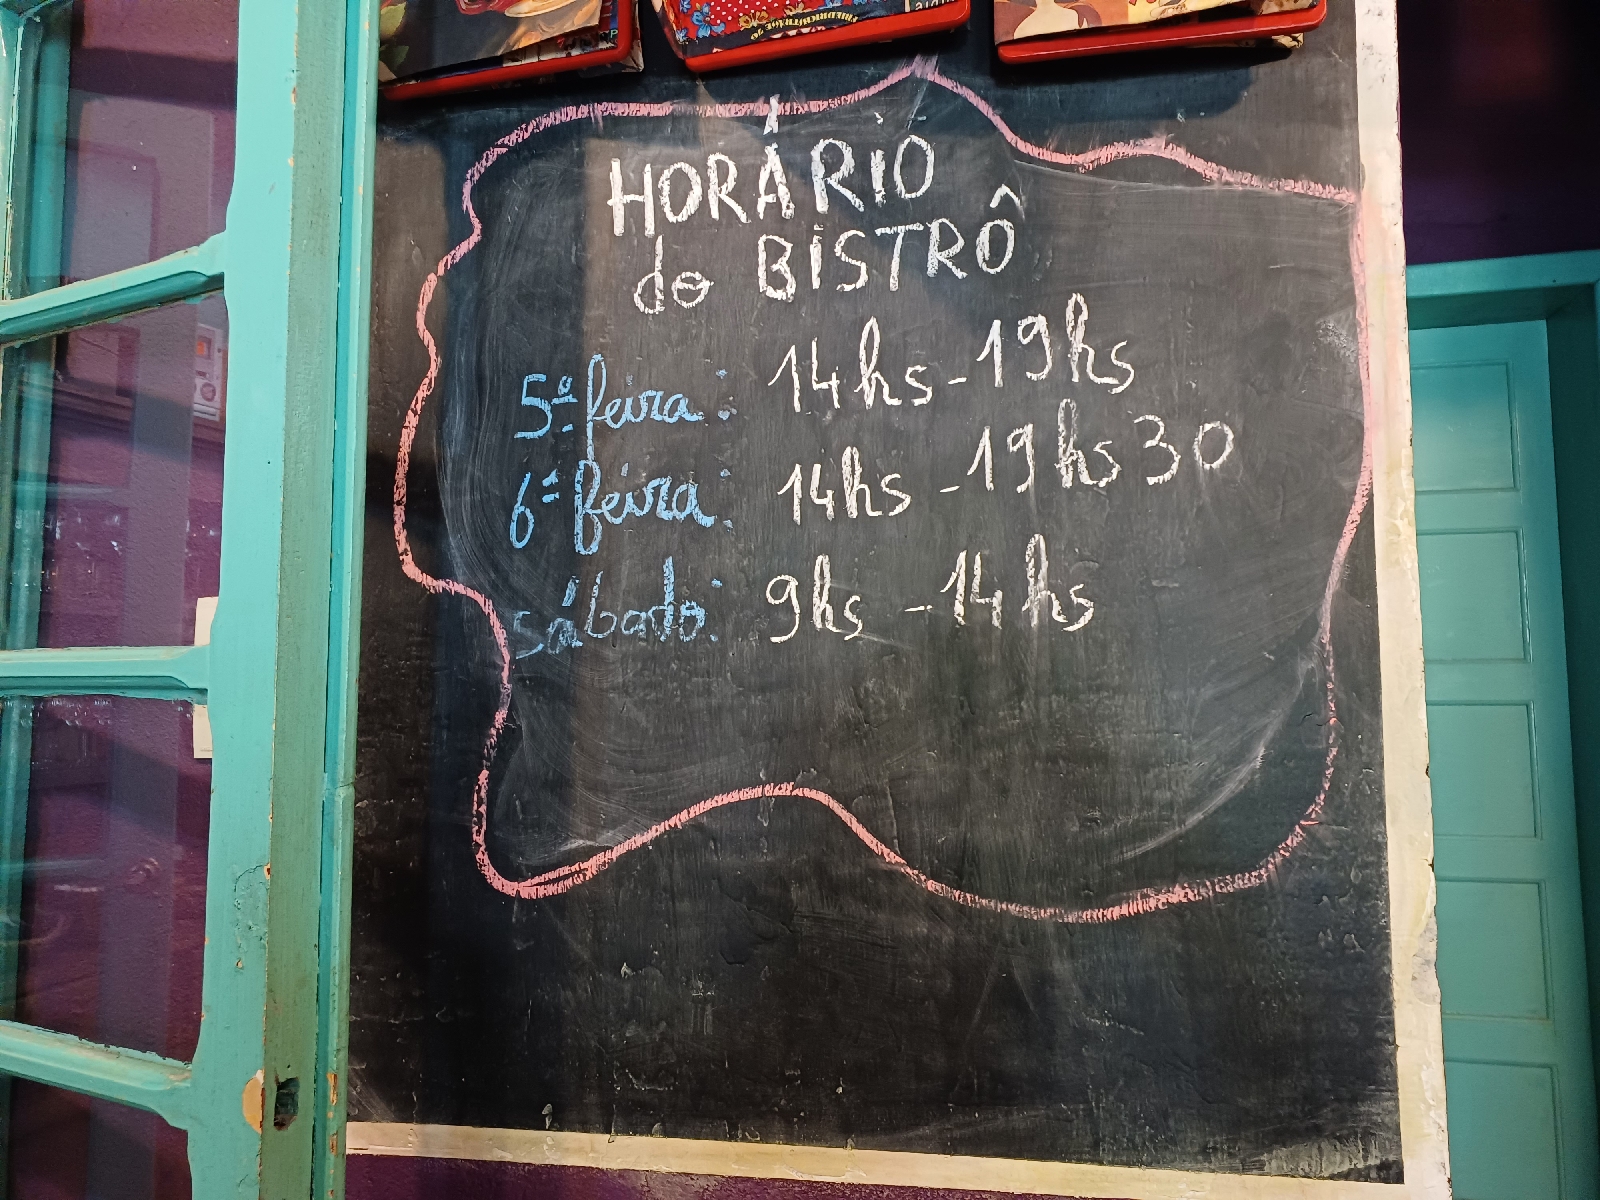 HORÁRIO
do BISTRÔ
5ª feira: 14hs - 19hs
6ª feira: 14hs - 19hs30
sábado: 9hs - 14hs